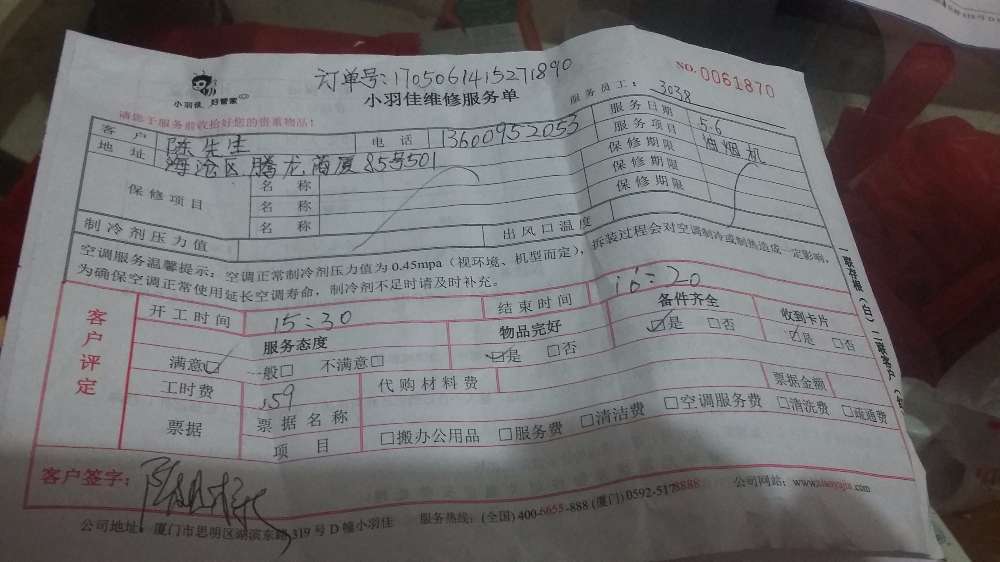 订单号:1705061415271890
NO.0061870
小羽佳 好管家
小羽佳维修服务单
服务员工: 3038
请您于服务前收拾好您的贵重物品!
客户 陈先生 电话 13600952053 服务日期 5.6
地址 海沧区腾龙商厦85号501 服务项目 油烟机
保修项目 名称 保修期限
名称 保修期限
名称 保修期限
制冷剂压力值 出风口温度
空调服务温馨提示: 空调正常制冷剂压力值为0.45mpa(视环境、机型而定), 拆装过程会对空调制冷或制热造成一定影响,
为确保空调正常使用延长空调寿命, 制冷剂不足时请及时补充。
客户评定
开工时间 15:30 结束时间 16:20
服务态度 物品完好 备件齐全 收到卡片
满意□ 一般□ 不满意□ □是 □否 □是 □否 □是 □否
工时费 159 代购材料费 票据金额
票据 票据名称
项目 □搬办公用品 □服务费 □清洁费 □空调服务费 □清洗费 □疏通费
客户签字:
公司地址: 厦门市思明区湖滨东路319号D幢小羽佳 服务热线: (全国) 400-6655-888 (厦门) 0592-5178888 公司网站: www.xiaoyujia.com
一联存根(白) 二联客户